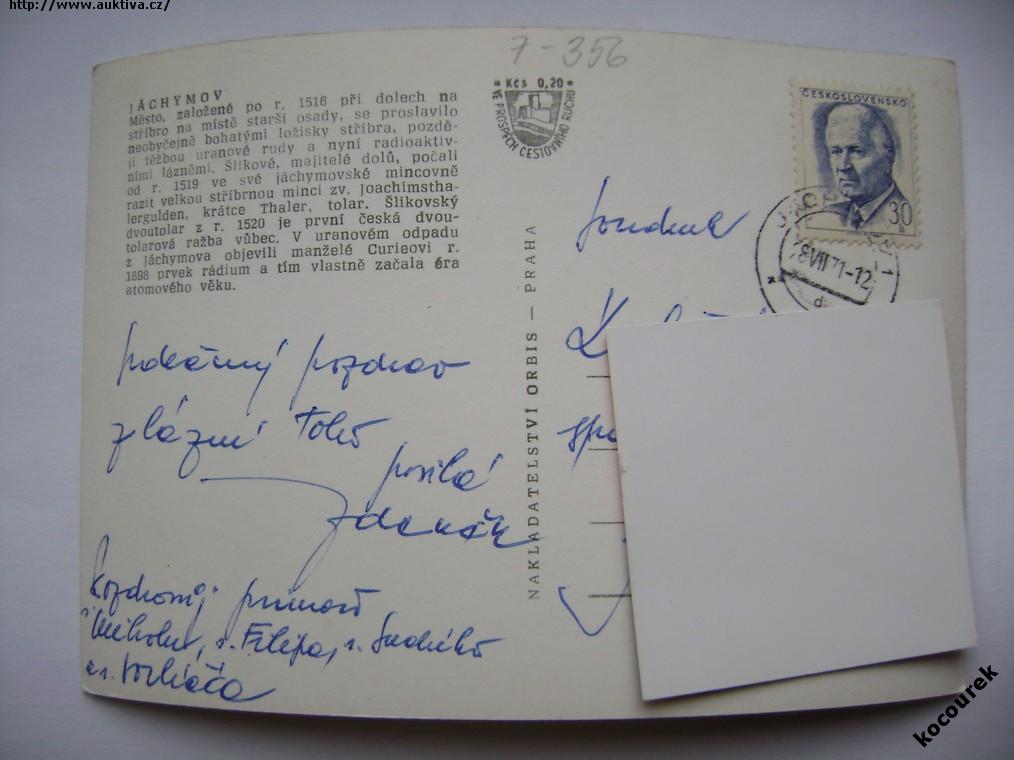 http://www.auktiva.cz/
7-356
JÁCHYMOV
Město, založené po r. 1516 při dolech na
stříbro na místě starší osady, se proslavilo
neobyčejně bohatými ložisky stříbra, pozdě-
ji těžbou uranové rudy a nyní radioaktiv-
ními lázněmi. Šlikové, majitelé dolů, počali
od r. 1519 ve své jáchymovské mincovně
razit velkou stříbrnou minci zv. Joachimstha-
lergulden, krátce Thaler, tolar. Šlikovský
dvoutolar z r. 1520 je první česká dvou-
tolarová ražba vůbec. V uranovém odpadu
z Jáchymova objevili manželé Curieovi r.
1898 prvek rádium a tím vlastně začala éra
atomového věku.
Kčs 0,20
VE PROSPĚCH CESTOVNÍHO RUCHU
ČESKOSLOVENSKO
30 h
VII 71-12
NAKLADATELSTVÍ ORBIS — PRAHA
Soudruh
Srdečný pozdrav
z lázní Tobě
posílá
Zdeněk
Pozdravuj
s. Filipa, s.
kocourek